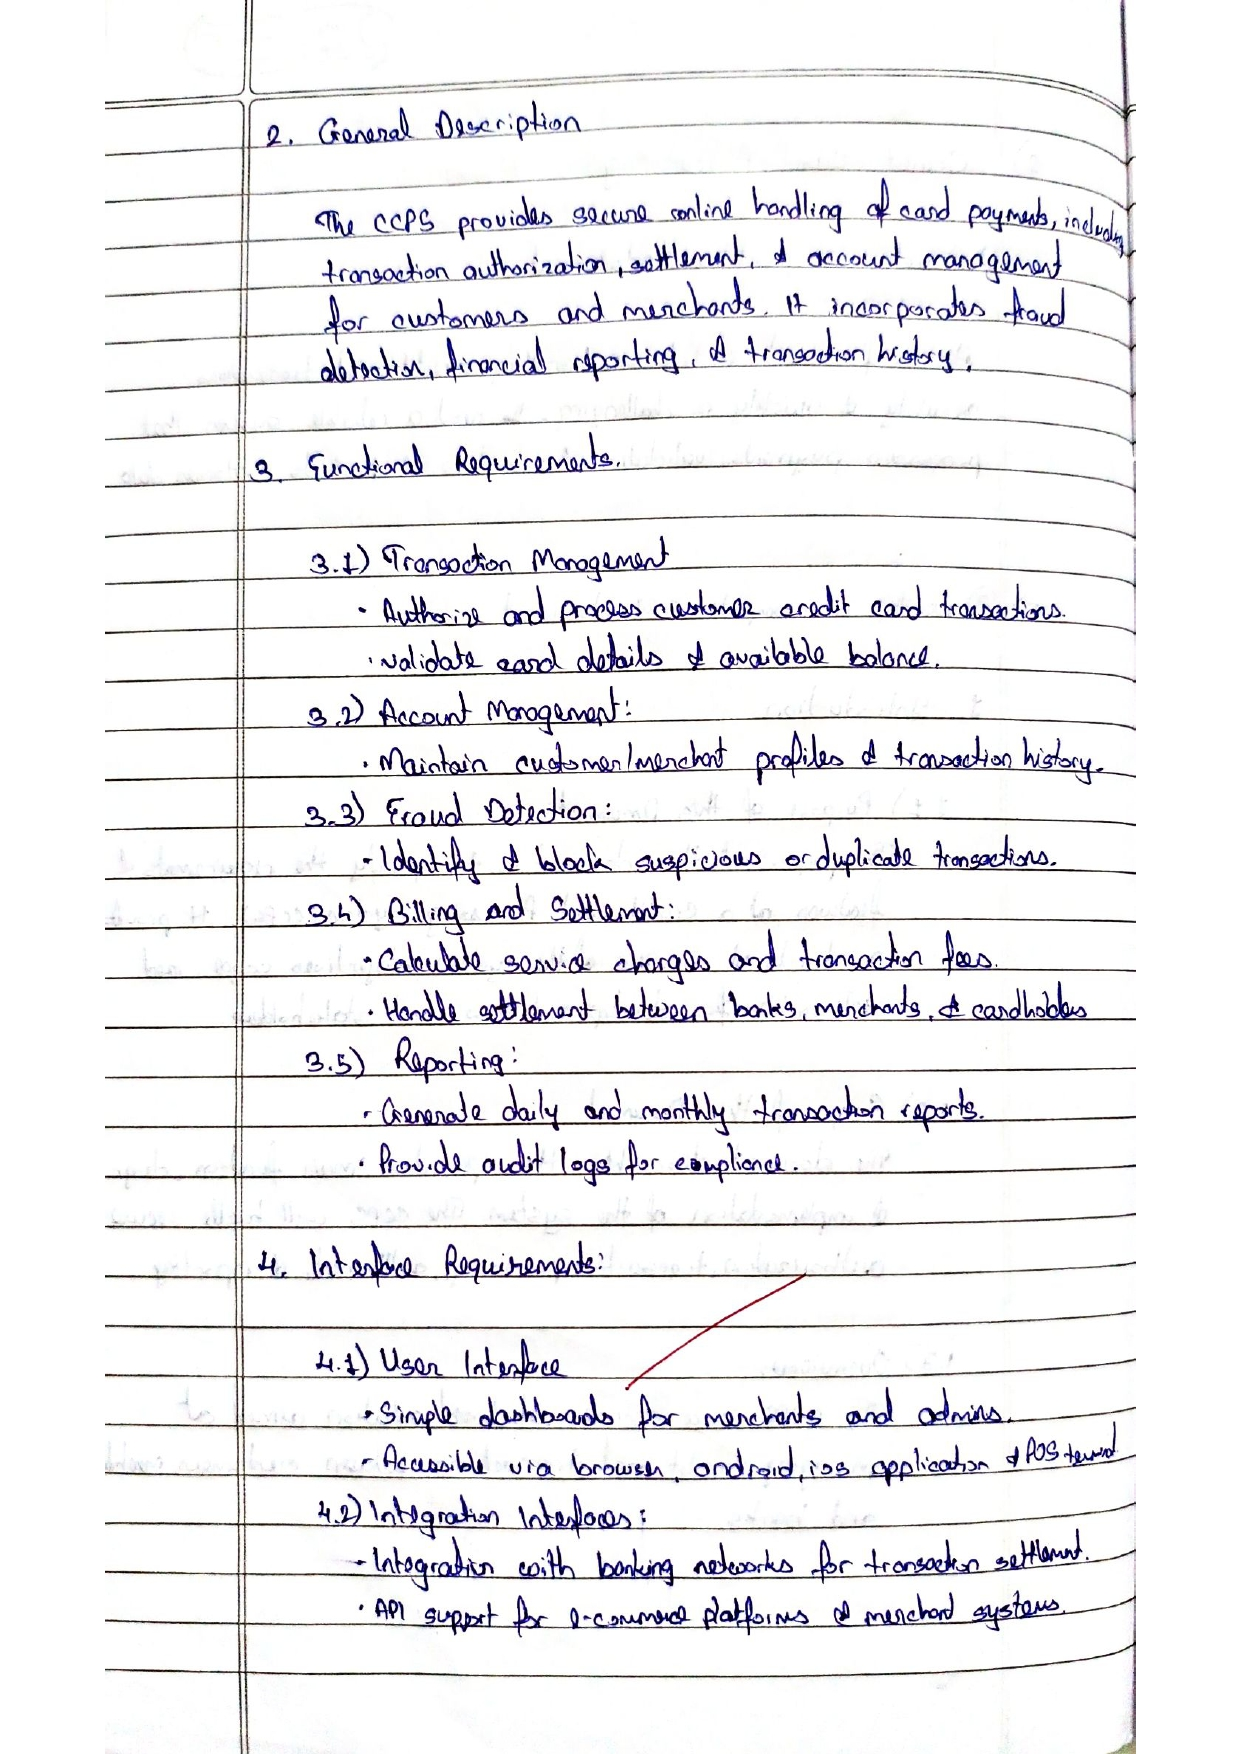 2. General Description
The CCPS provides secure online handling of card payments, including
transaction authorization, settlement, & account management
for customers and merchants. It incorporates fraud
detection, financial reporting, & transaction history.
3. Functional Requirements.
3.1) Transaction Management
• Authorize and process customer credit card transactions.
• validate card details & available balance.
3.2) Account Management:
• Maintain customer/merchant profiles & transaction history.
3.3) Fraud Detection:
- Identify & block suspicious or duplicate transactions.
3.4) Billing and Settlement:
• Calculate service charges and transaction fees.
• Handle settlement between banks, merchants, & cardholders
3.5) Reporting:
• Generate daily and monthly transaction reports.
• Provide audit logs for compliance.
4. Interface Requirements:
4.1) User Interface
• Simple dashboards for merchants and admins.
- Accessible via browser, android, ios application & POS
4.2) Integration Interfaces:
- Integration with banking networks for transaction settlement.
• API support for e-commerce platforms & merchant systems.